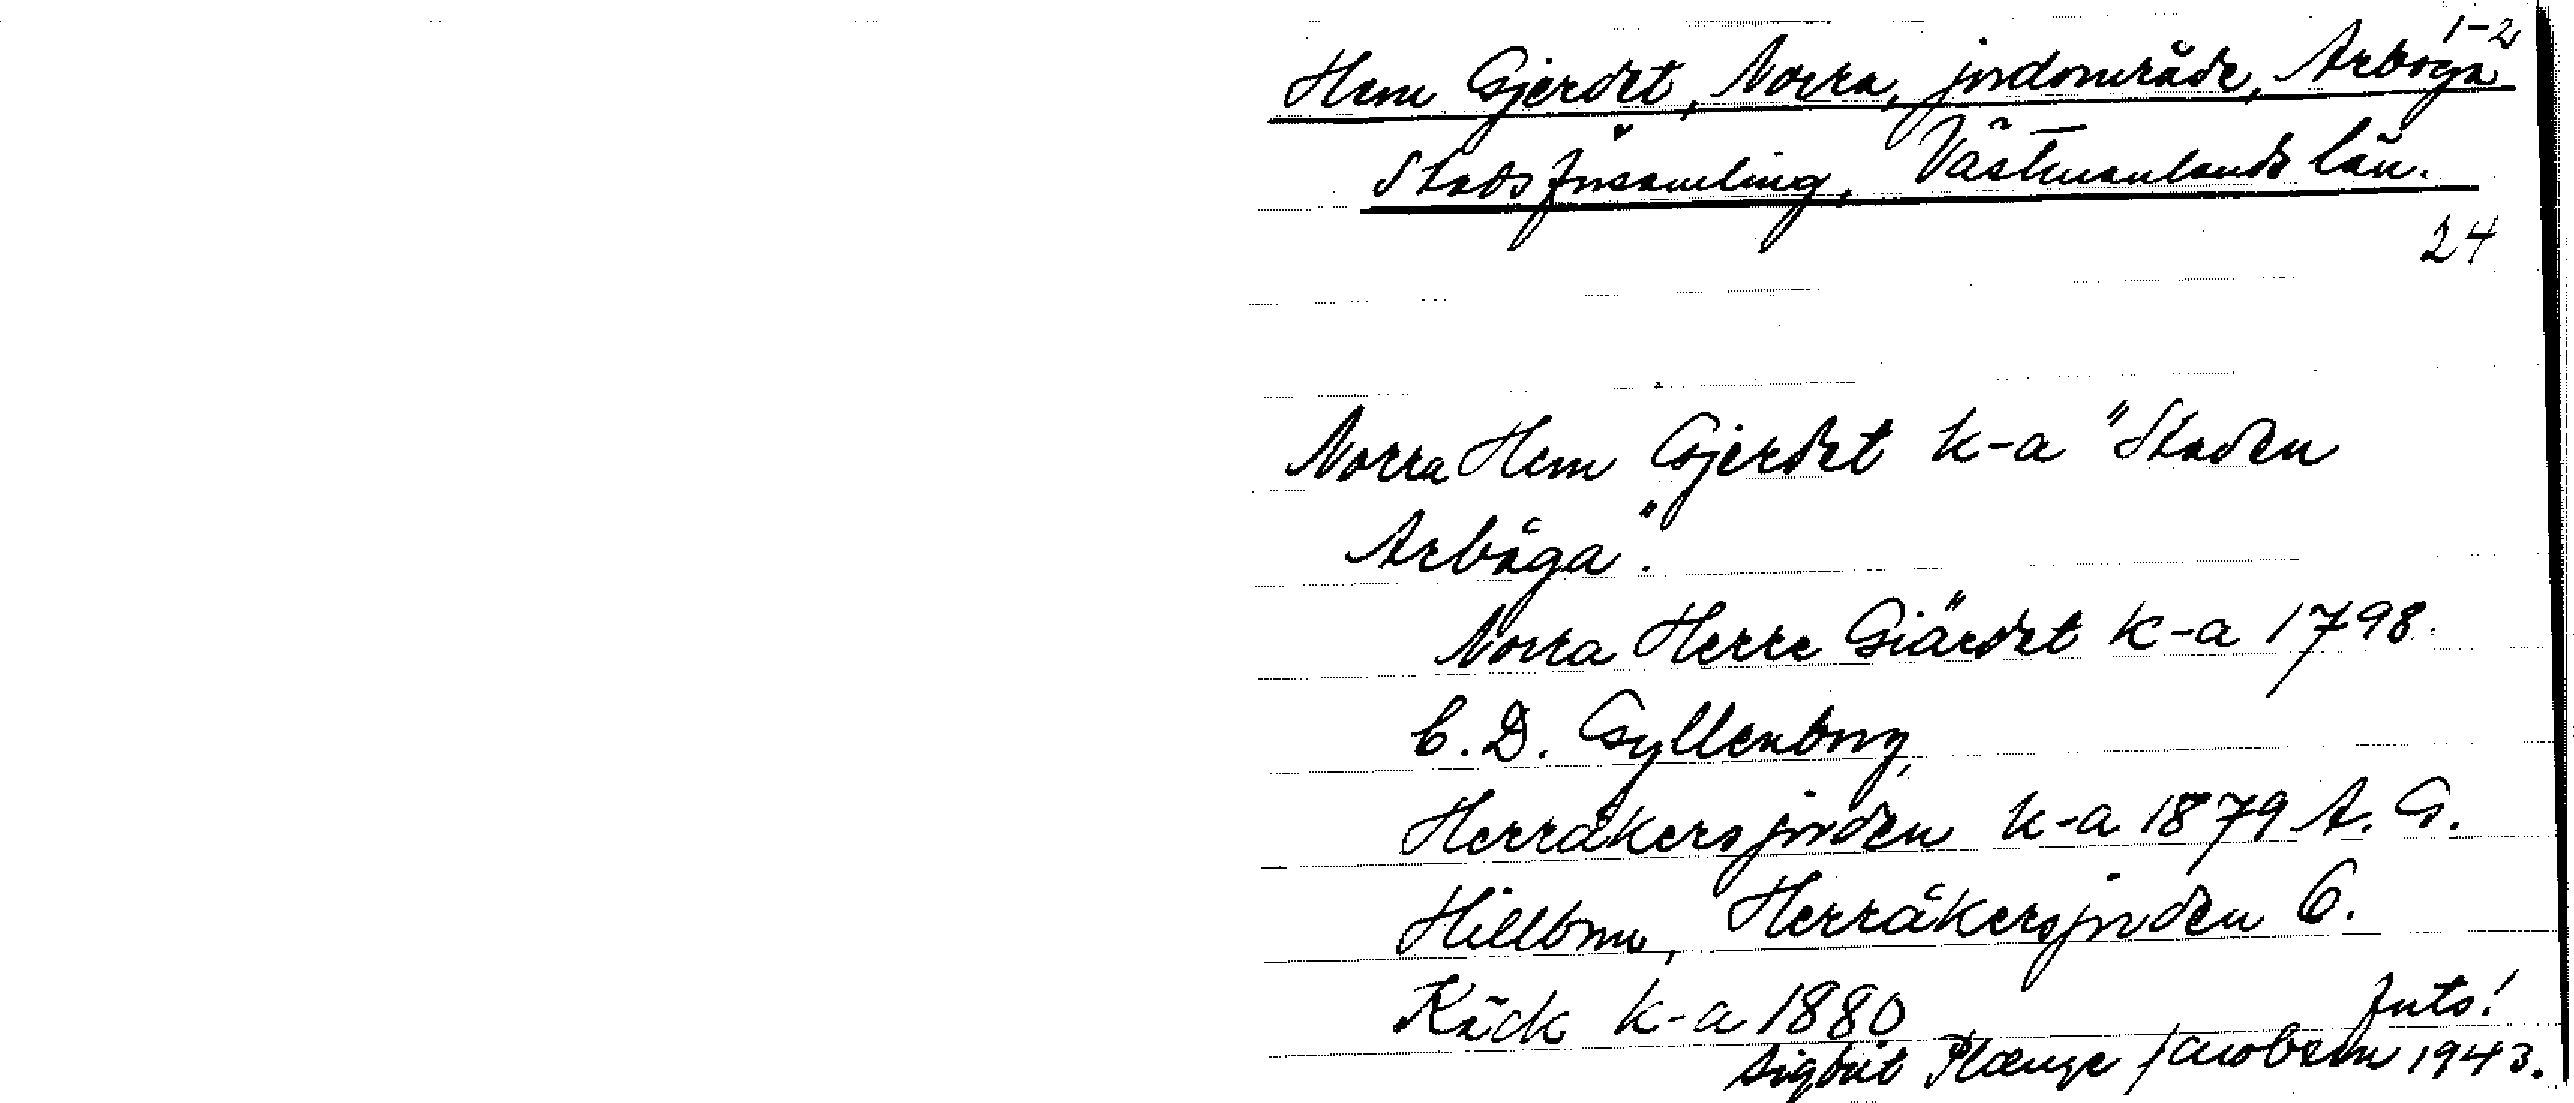 1-2
Hem Gjerdet, Norra, jordområde, Arboga
Stadsförsamling, Västmanlands län.
24
Norra Hem Gjerdet k-a "Staden
Arboga".
Norra Herre Giärdet k-a 1798
C. D. Gyllenborg,
Herråkersjorden k-a 1879 A. G.
Hillbom, Herråkersjorden C.
Käck k-a 1880
forts!
Sigbrit Plænge Jacobson 1943.